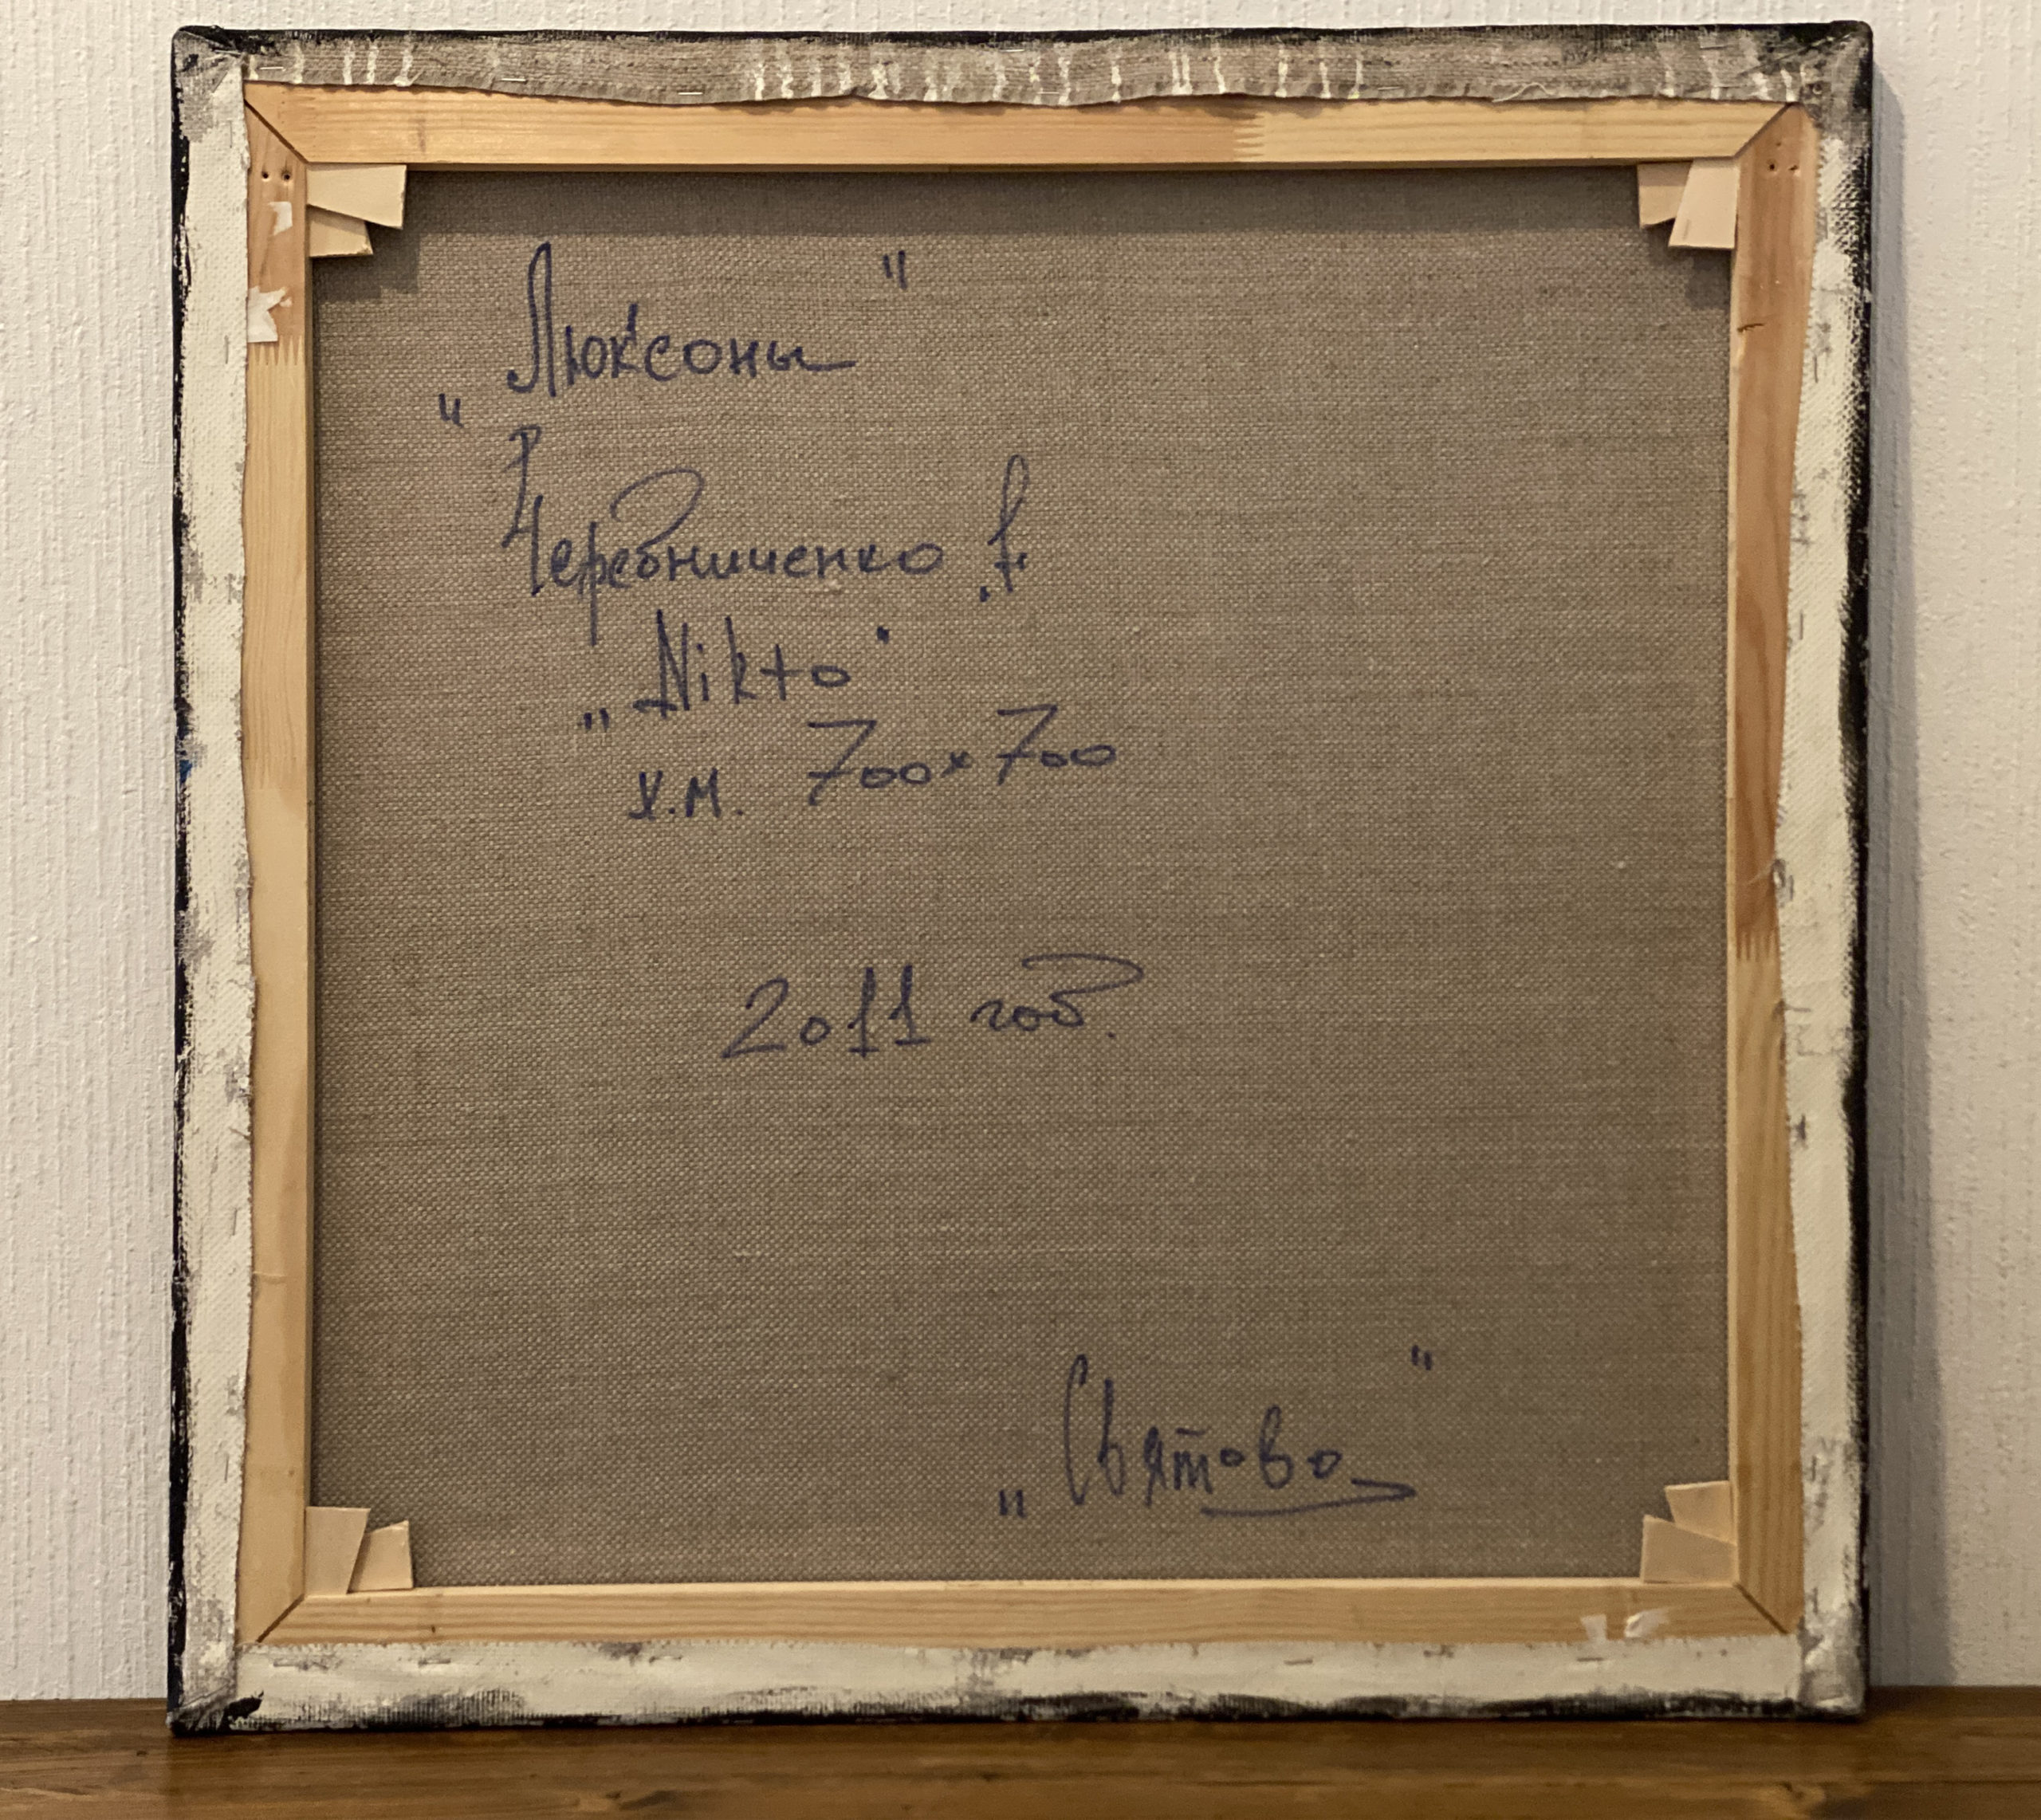 „Люксоны"
Чередниченко
„Nikto"
х.м. 700х700
2011 год.
„Святово"